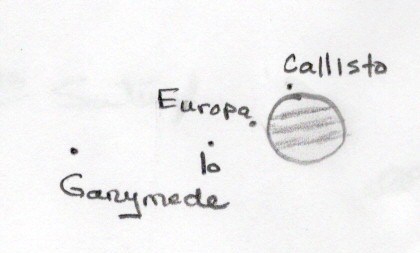 Callisto
Europa
Io
Ganymede